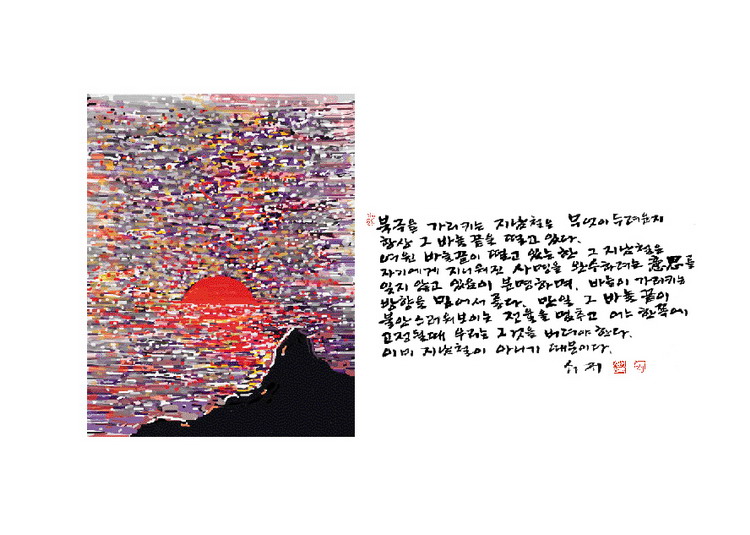 북극을 가리키는 지남철은 무엇이 두려운지
항상 그 바늘 끝을 떨고 있다.
여윈 바늘 끝이 떨고 있는 한 그 지남철은
자기에게 지니워진 사명을 완수하려는 意思를
잊지 않고 있음이 분명하며, 바늘이 가리키는
방향을 믿어서 좋다. 만일 그 바늘 끝이
불안스러워보이는 전율을 멈추고 어느 한쪽에
고정될때 우리는 그것을 버려야 한다.
이미 지남철이 아니기 때문이다.